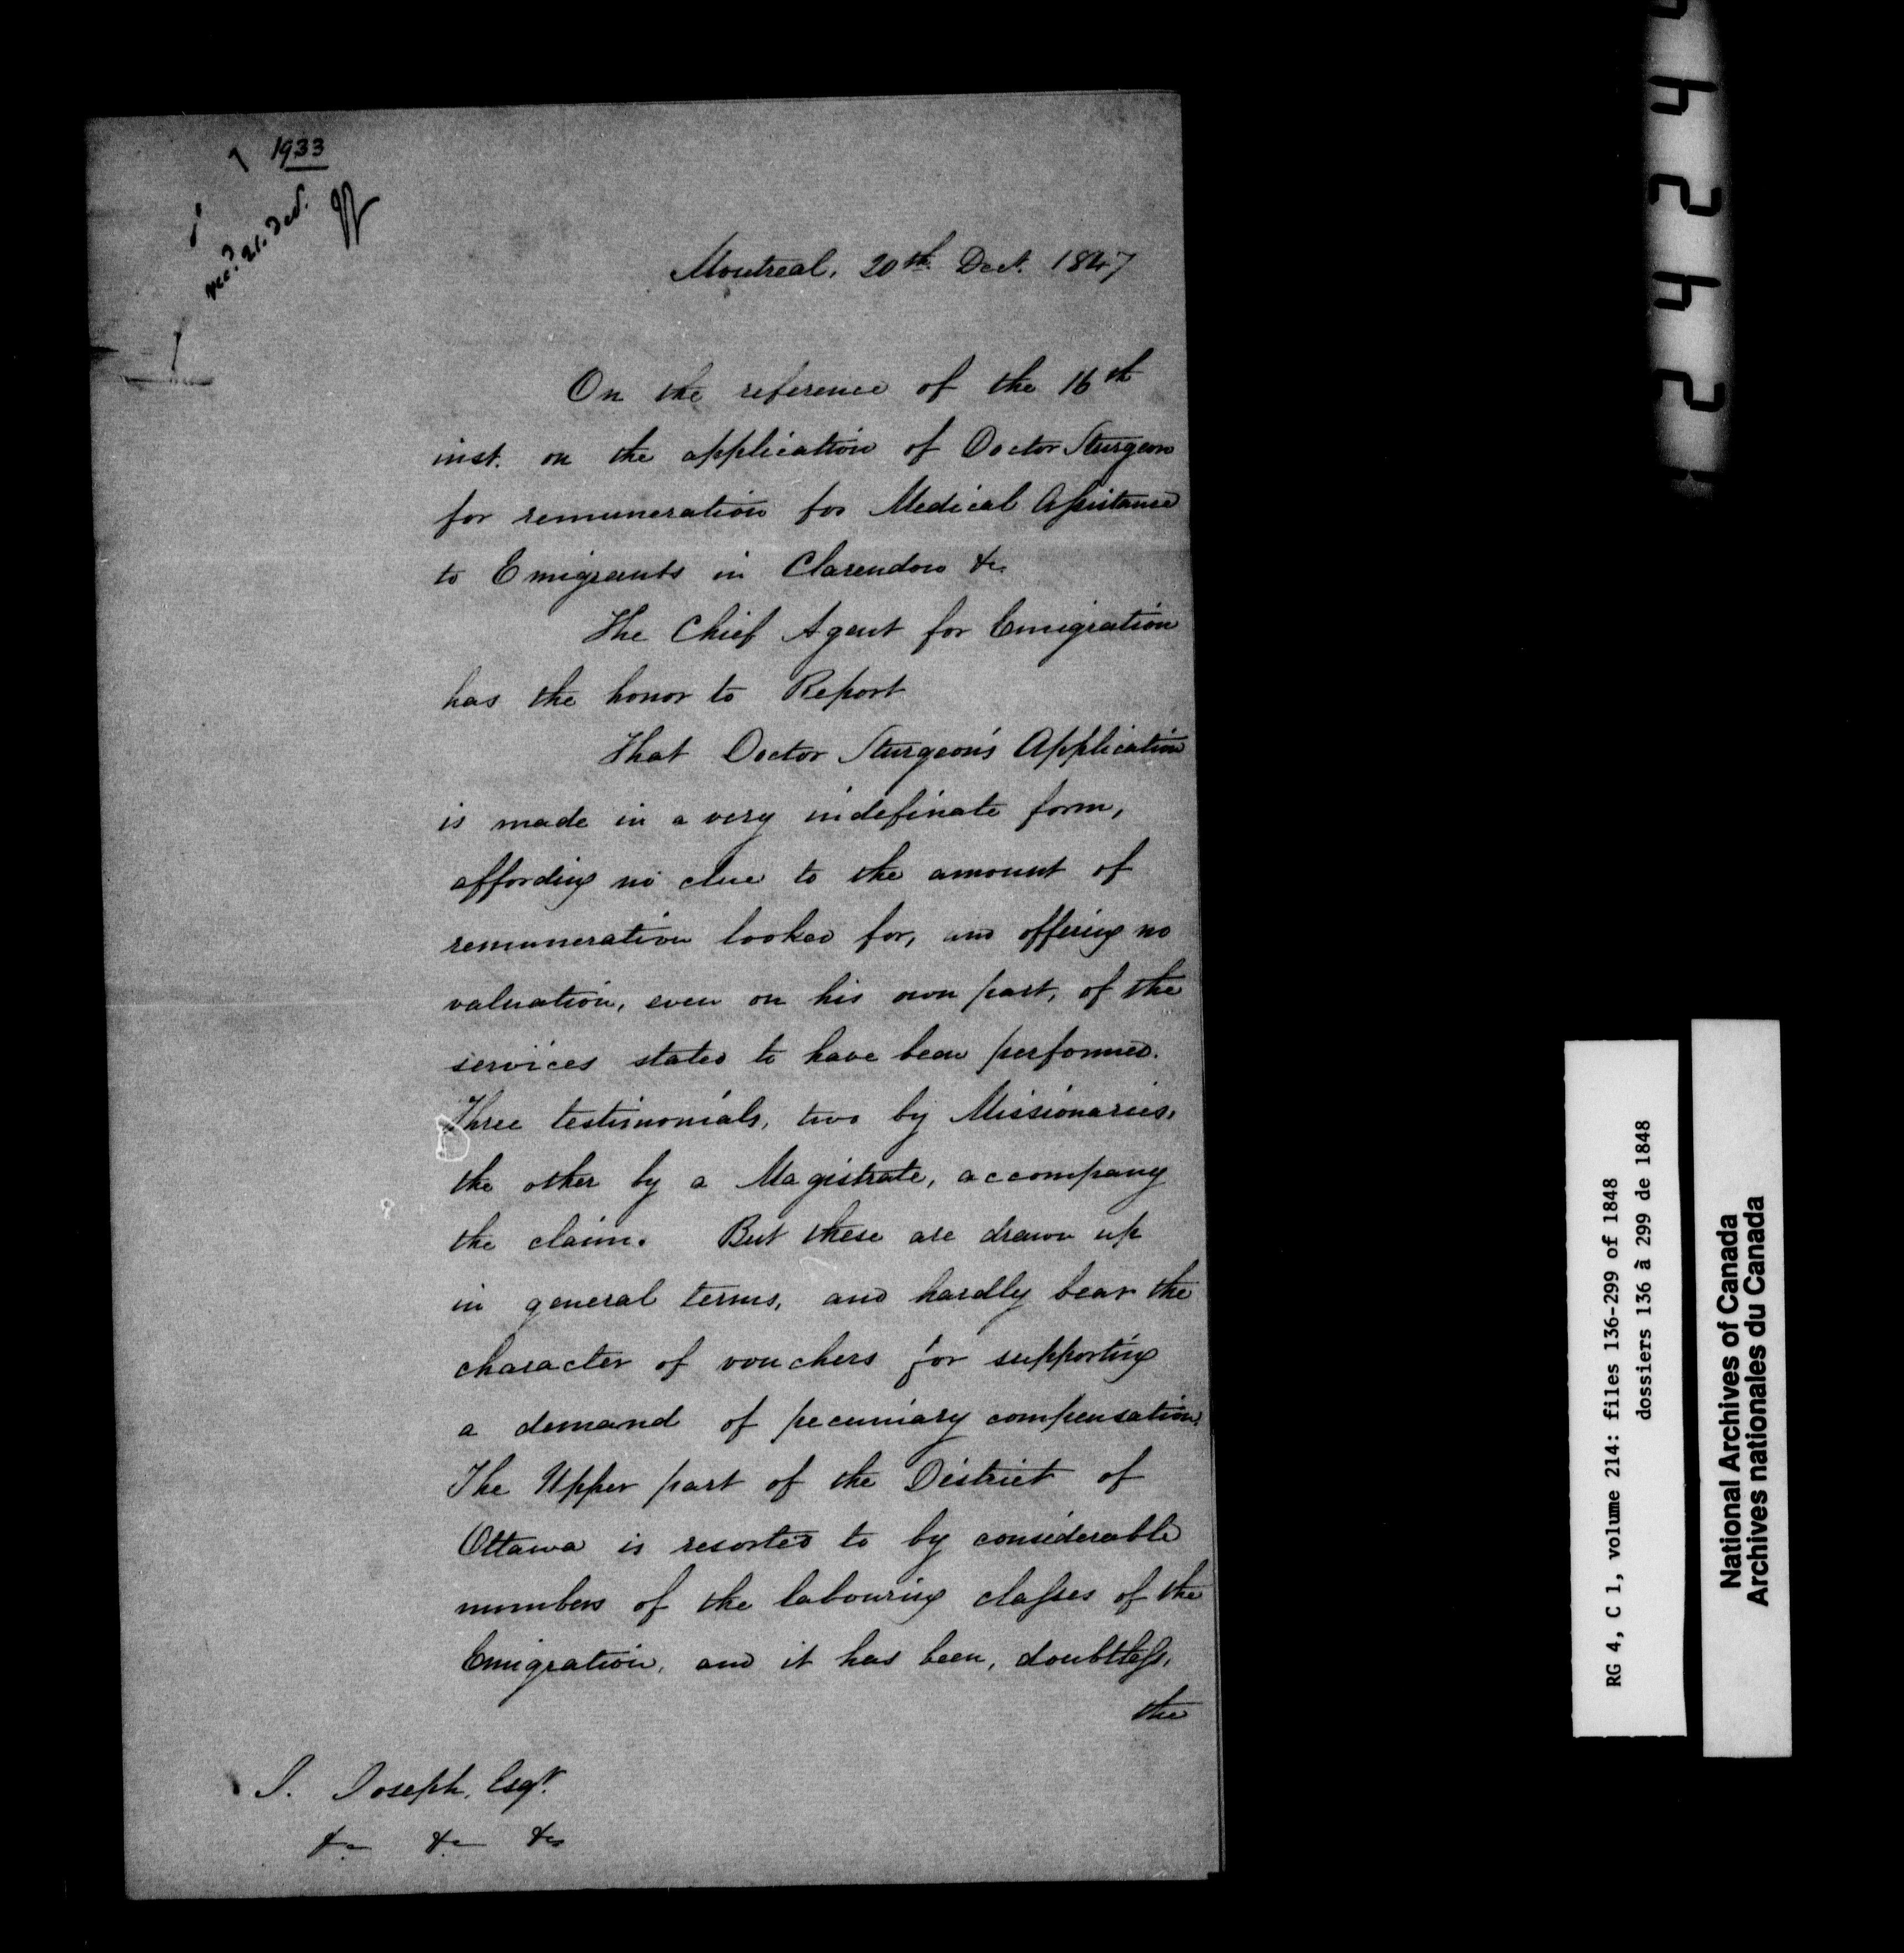 1933
recd. 21. Decr.
Montreal, 20th. Decr. 1847
On the reference of the 16th
inst. on the application of Doctor Sturgeon
for remuneration for Medical Assistance
to Emigrants in Clarendon &c.
The Chief Agent for Emigration
has the honor to Report
That Doctor Sturgeon's Application
is made in a very indefinate form,
affording no clue to the amount of
remuneration looked for, and offering no
valuation, even on his own part, of the
services stated to have been performed.
Three testimonials, two by Missionaries,
the other by a Magistrate, accompany
the claim. But these are drawn up
in general terms, and hardly bear the
character of vouchers for supporting
a demand of pecuniary compensation.
The Upper part of the District of
Ottawa is resorted to by considerable
numbers of the labouring classes of the
Emigration, and it has been, doubtless,
the
J. Joseph, Esqr.
&c &c &c
4242
RG 4, C 1, volume 214: files 136-299 of 1848
dossiers 136 à 299 de 1848
National Archives of Canada
Archives nationales du Canada